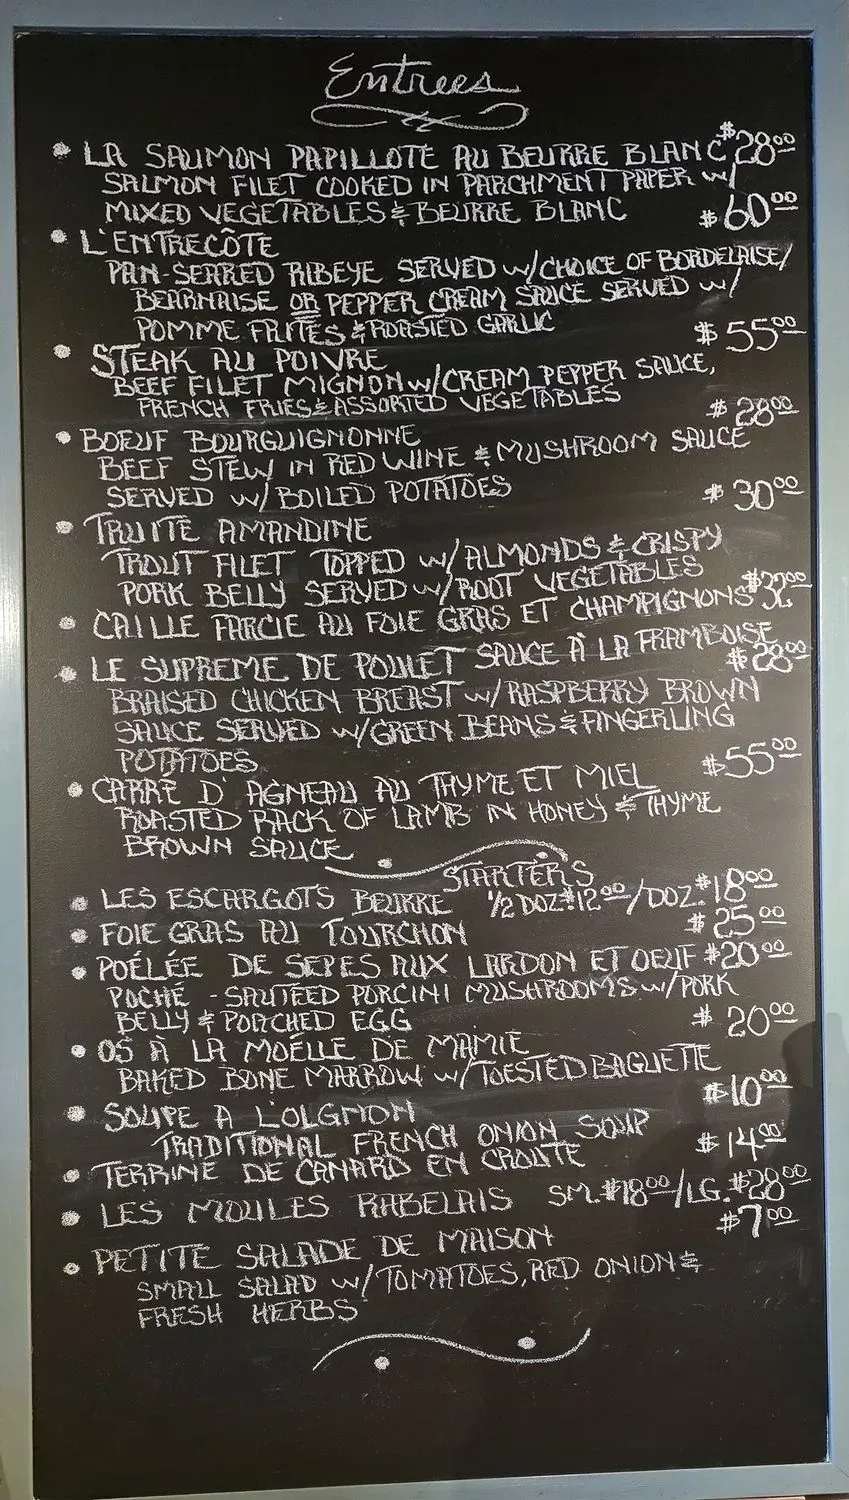 Entrees
LA SAUMON PAPILLOTE AU BEURRE BLANC $28⁰⁰
SALMON FILET COOKED IN PARCHMENT PAPER w/
MIXED VEGETABLES & BEURRE BLANC
L'ENTRECÔTE $60⁰⁰
PAN-SEARED RIBEYE SERVED w/CHOICE OF BORDELAISE/
BEARNAISE OR PEPPER CREAM SAUCE SERVED w/
POMME FRITES & ROASTED GARLIC
STEAK AU POIVRE $55⁰⁰
BEEF FILET MIGNON w/CREAM PEPPER SAUCE,
FRENCH FRIES & ASSORTED VEGETABLES
BOEUF BOURGUIGNONNE $28⁰⁰
BEEF STEW IN RED WINE & MUSHROOM SAUCE
SERVED w/BOILED POTATOES
TRUITE AMANDINE $30⁰⁰
TROUT FILET TOPPED w/ALMONDS & CRISPY
PORK BELLY SERVED w/ROOT VEGETABLES
CAILLE FARCIE AU FOIE GRAS ET CHAMPIGNONS $32⁰⁰
LE SUPREME DE POULET SAUCE À LA FRAMBOISE $28⁰⁰
BRAISED CHICKEN BREAST w/RASPBERRY BROWN
SAUCE SERVED w/GREEN BEANS & FINGERLING
POTATOES
CARRÉ D'AGNEAU AU THYME ET MIEL $55⁰⁰
ROASTED RACK OF LAMB IN HONEY & THYME
BROWN SAUCE
STARTERS
LES ESCARGOTS BEURRE 1/2 DOZ.$12⁰⁰/DOZ.$18⁰⁰
FOIE GRAS AU TOURCHON $25⁰⁰
POÉLÉE DE SEPES AUX LARDON ET OEUF $20⁰⁰
POCHÉ - SAUTÉED PORCINI MUSHROOMS w/PORK
BELLY & POACHED EGG
OS À LA MOÉLLE DE MAMIE $20⁰⁰
BAKED BONE MARROW w/TOESTED BAGUETTE
SOUPE A L'OIGNON $10⁰⁰
TRADITIONAL FRENCH ONION SOUP
TERRINE DE CANARD EN CROUTE $14⁰⁰
LES MOULES RABELAIS SM.$18⁰⁰/LG.$28⁰⁰
PETITE SALADE DE MAISON $7⁰⁰
SMALL SALAD w/TOMATOES, RED ONION &
FRESH HERBS